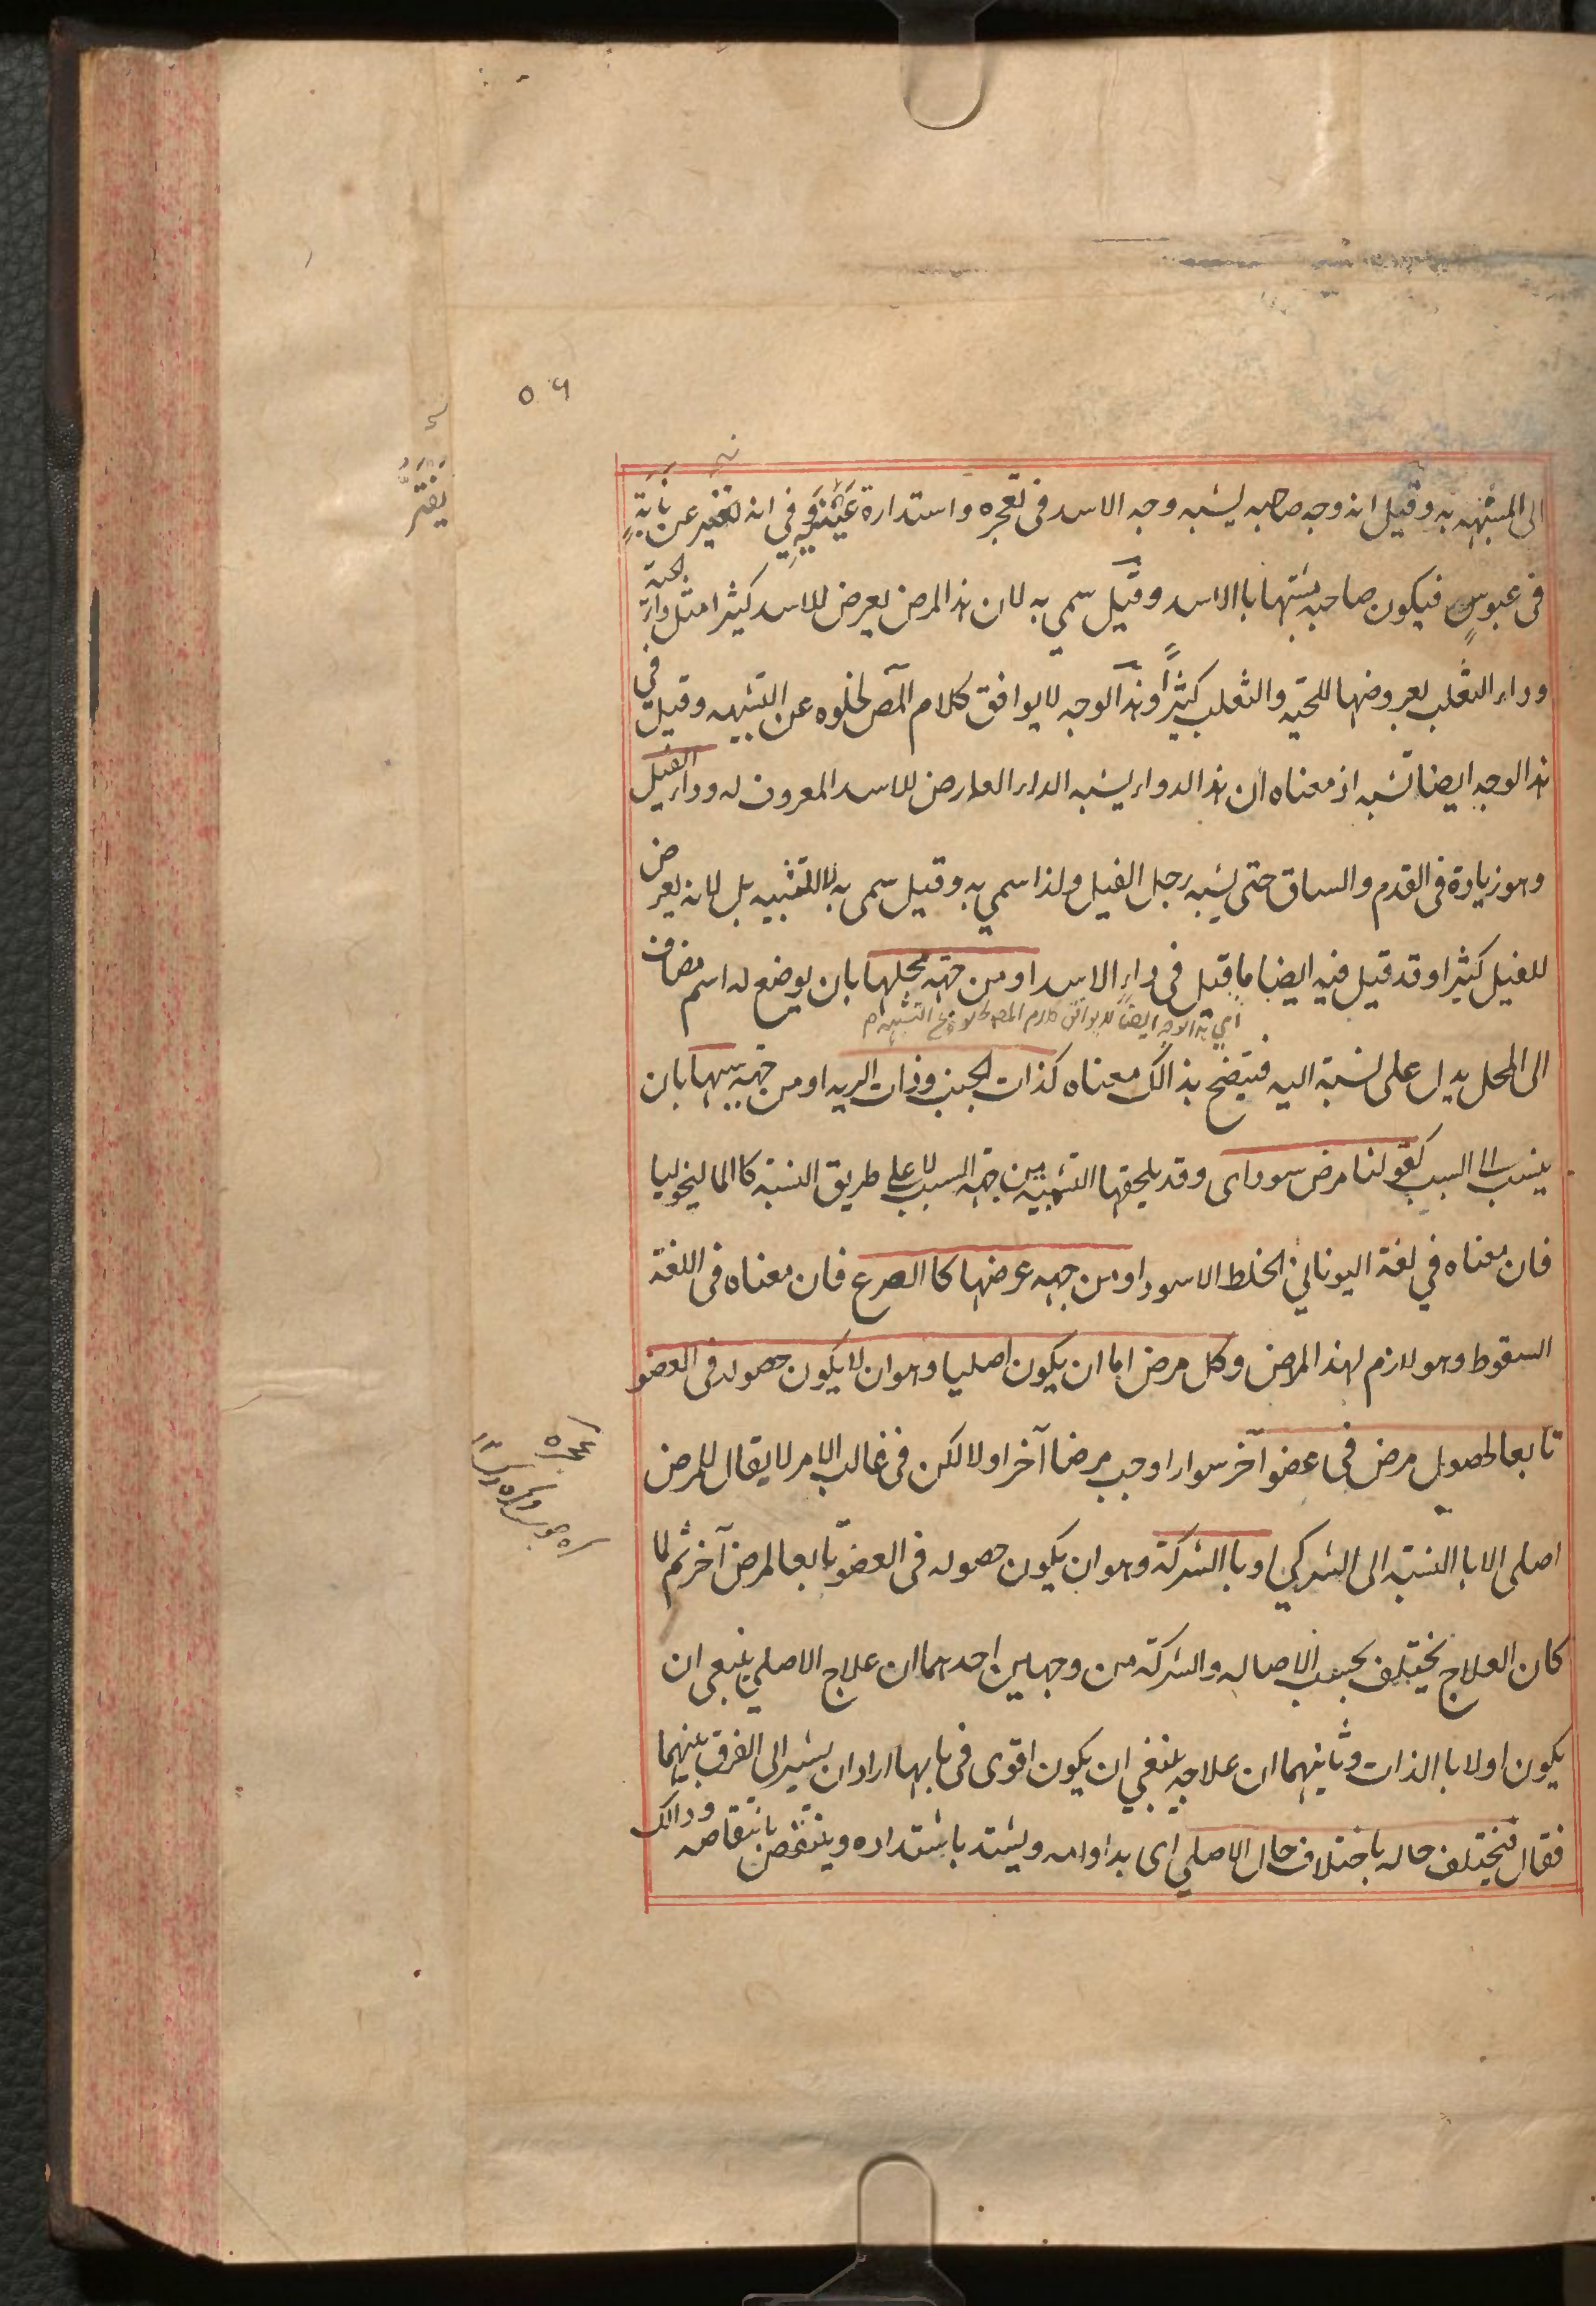 ٥٦
الى المشبهه به وقيل انه وجه صاحبه يشبه وجه الاسد فى تعجره واستدارة عَيْنَيْهِ وفِي انه تغير عن نابَةٍ
يَفْتَرُّ
فى عبوسٍ فيكون صاحبه مشتبها باالاسد وقيل سمي به لان هذ المرض يعرض للاسد كثيرا مثل داء الحية
وداء الثعلب لعروضها للحيّه والثعلب كثيراً وهذ الوجه لا يوافق كلام المص لخلوه عن التشبيه وقيل في
هذ الوجه ايضا تشبه اذ معناه ان هذ الدواء يشبه الداء العارض للاسد المعروف له وداء الفيل
وهو زيادة فى القدم والساق حتى يشبه رجل الفيل ولذا سمي به وقيل سمى به لا للتشبيه بل لانه يعرض
للفيل كثيرا وقد قيل فيه ايضا ما قيل فى داء الاسد او من جهة محلها بان يوضع له اسم مضاف
اي هذ الوجه ايضا لا يوافق كلام المص لخلوه عن التشبيه م
الى المحل يدل على نسبة اليه فيتضح بذالك معناه كذات الجنب وذات الريه او من جهة سببها بان
ينسب الى السبب كقولنا مرض سوداى وقد يلحقها التسمية من جهة السبب لا على طريق النسبة كا الماليخوليا
فان معناه في لغة اليوناني الخلط الاسود او من جهه عرضها كا الصرع فان معناه فى اللغة
السقوط وهو لازم لهذ المرض وكل مرض اما ان يكون اصليا وهو ان لا يكون حصوله فى العضو
تابعا لحصول مرض فى عضو آخر سواء اوجب مرضا آخر او لا لكن فى غالب الامر لا يقال للمرض
عجره
اصلى الا باالنسبة الى الشركي او باالشركة وهو ان يكون حصوله فى العضو تابعا لمرض آخر ثم لما
كان العلاج يختلف بحسب الاصاله والشركة من وجهين احدهما ان علاج الاصلي ينبغى ان
يكون اولا باالذات وثانيهما ان علاجه ينبغي ان يكون اقوى فى بابها اراد ان يشير الى الفرق بينهما
فقال فيختلف حاله باختلاف حال الاصلي اى بداوامه ويشتد باشتداده وينتقص بانتقاصه وذالك